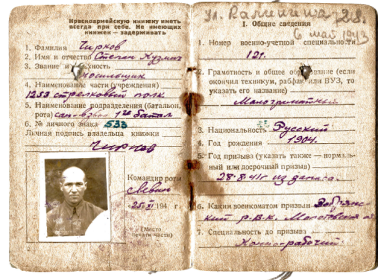 Красноармейскую книжку иметь
всегда при себе. Не имеющих
книжек — задерживать
1. Фамилия Чирков
2. Имя и отчество Степан
3. Звание и должность
носильщик
4. Наименование части (учреждения)
1233 стрелковый полк
5. Наименование подразделения (батальон,
рота) сан. взвод 1й батал
6. № личного знака 533
Личная подпись владельца книжки
Чирков
Командир роты
25. 194 г.
(Место
печати части)
6 май 1943
I. Общие сведения
1. Номер военно-учетной специальности
121.
2. Грамотность и общее образование (если
окончил техникум, рабфак или ВУЗ, то
указать его название)
Малограмотный
3. Национальность Русский
4. Год рождения
1904.
5. Год призыва (указать также — нормаль-
ный или досрочный призыв)
28-8-41г из запаса.
6. Каким военкоматом призван
ский Р.В.К. Молотовская
7. Специальность до призыва